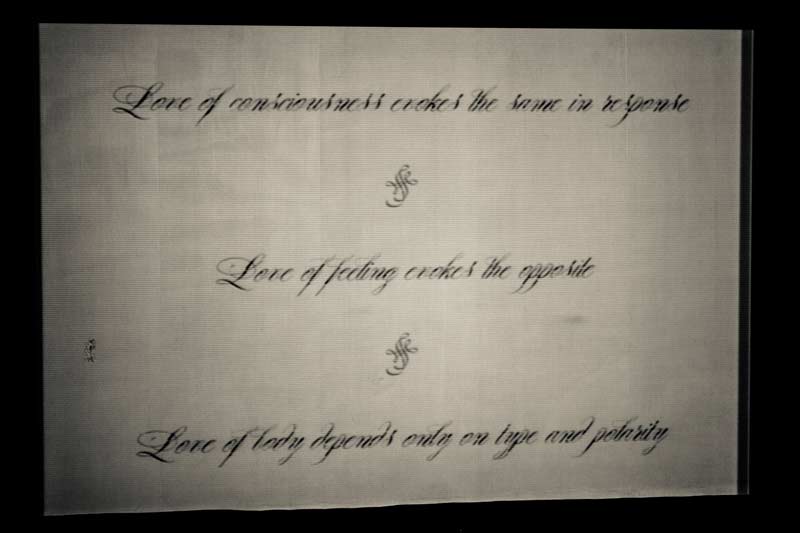 Love of consciousness evokes the same in response
Love of feeling evokes the opposite
Love of body depends only on type and polarity